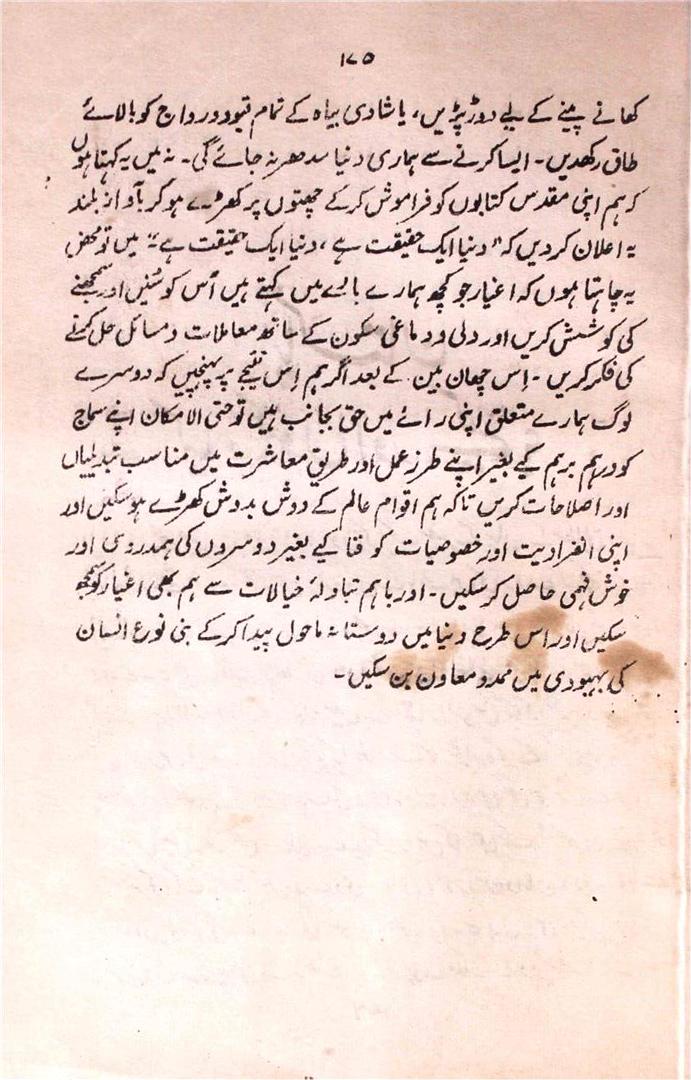 ۱۷۵
کھانے پینے کے لیے دوڑ پڑیں، یا شادی بیاہ کے تمام قیود و رواج کو بالائے
طاق رکھدیں۔ ایسا کرنے سے ہماری دنیا سدھر نہ جائے گی۔ نہ میں یہ کہتا ہوں
کہ ہم اپنی مقدس کتابوں کو فراموش کرکے چھتوں پر کھڑے ہو کر بآوازِ بلند
یہ اعلان کر دیں کہ "دنیا ایک حقیقت ہے، دنیا ایک حقیقت ہے" میں تو محض
یہ چاہتا ہوں کہ اغیار جو کچھ ہمارے بارے میں کہتے ہیں اُس کو سُنیں اور سمجھنے
کی کوشش کریں اور دلی و دماغی سکون کے ساتھ معاملات و مسائل حل کرنے
کی فکر کریں۔ اِس چھان بین کے بعد اگر ہم اِس نتیجے پر پہنچیں کہ دوسرے
لوگ ہمارے متعلق اپنی رائے میں حق بجانب ہیں تو حتی الامکان اپنے سماج
کو درہم برہم کیے بغیر اپنے طرزِ عمل اور طریقِ معاشرت میں مناسب تبدیلیاں
اور اصلاحات کریں تاکہ ہم اقوامِ عالم کے دوش بدوش کھڑے ہو سکیں اور
اپنی انفرادیت اور خصوصیات کو فنا کیے بغیر دوسروں کی ہمدردی اور
خوش فہمی حاصل کر سکیں۔ اور باہم تبادلۂ خیالات سے ہم بھی اغیار کو سمجھ
سکیں اور اس طرح دنیا میں دوستانہ ماحول پیدا کرکے بنی نوع انسان
کی بہبودی میں ممد و معاون بن سکیں۔